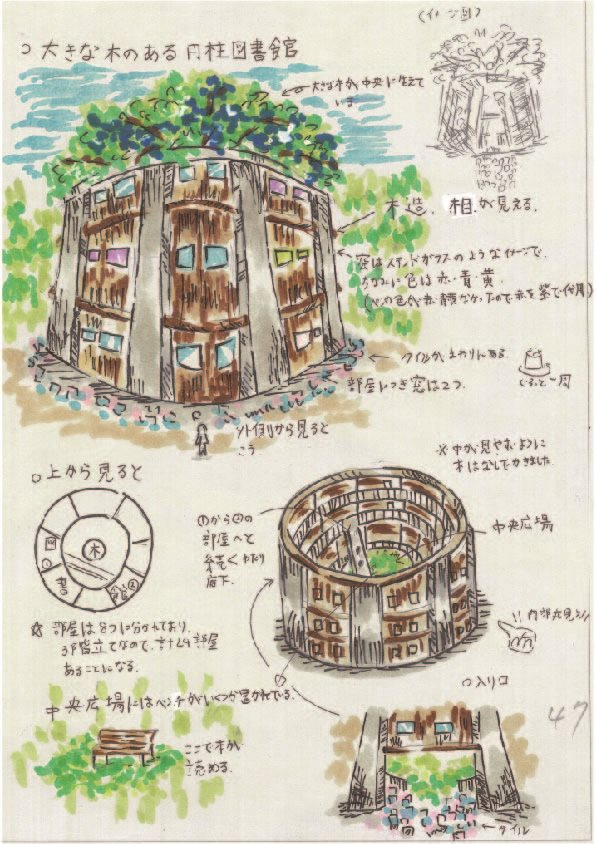 (イメージ図)
○ 大きな木のある円柱図書館
大きな木が、中央に生えて
いる
木造。相が見える。
窓はステンドガラスのようなイメージで、
ちなみに色は赤・青・黄
タイルがまわりにある。
部屋につき窓は2つ。
ぐるっと一周
外側から見ると
こう
※ 中が見やすいように
木はなしでかきました。
○ 上から見ると
木
図
書
館
の部屋へと
続くわたり
廊下。
中央広場
!! 内部大見え!!
※ 部屋は8つに分かれており、
3階立てなので、計24部屋
あることになる。
○入り口
中央広場にはベンチがいくつか置かれている。
ここで本が
読める。
タイル
47